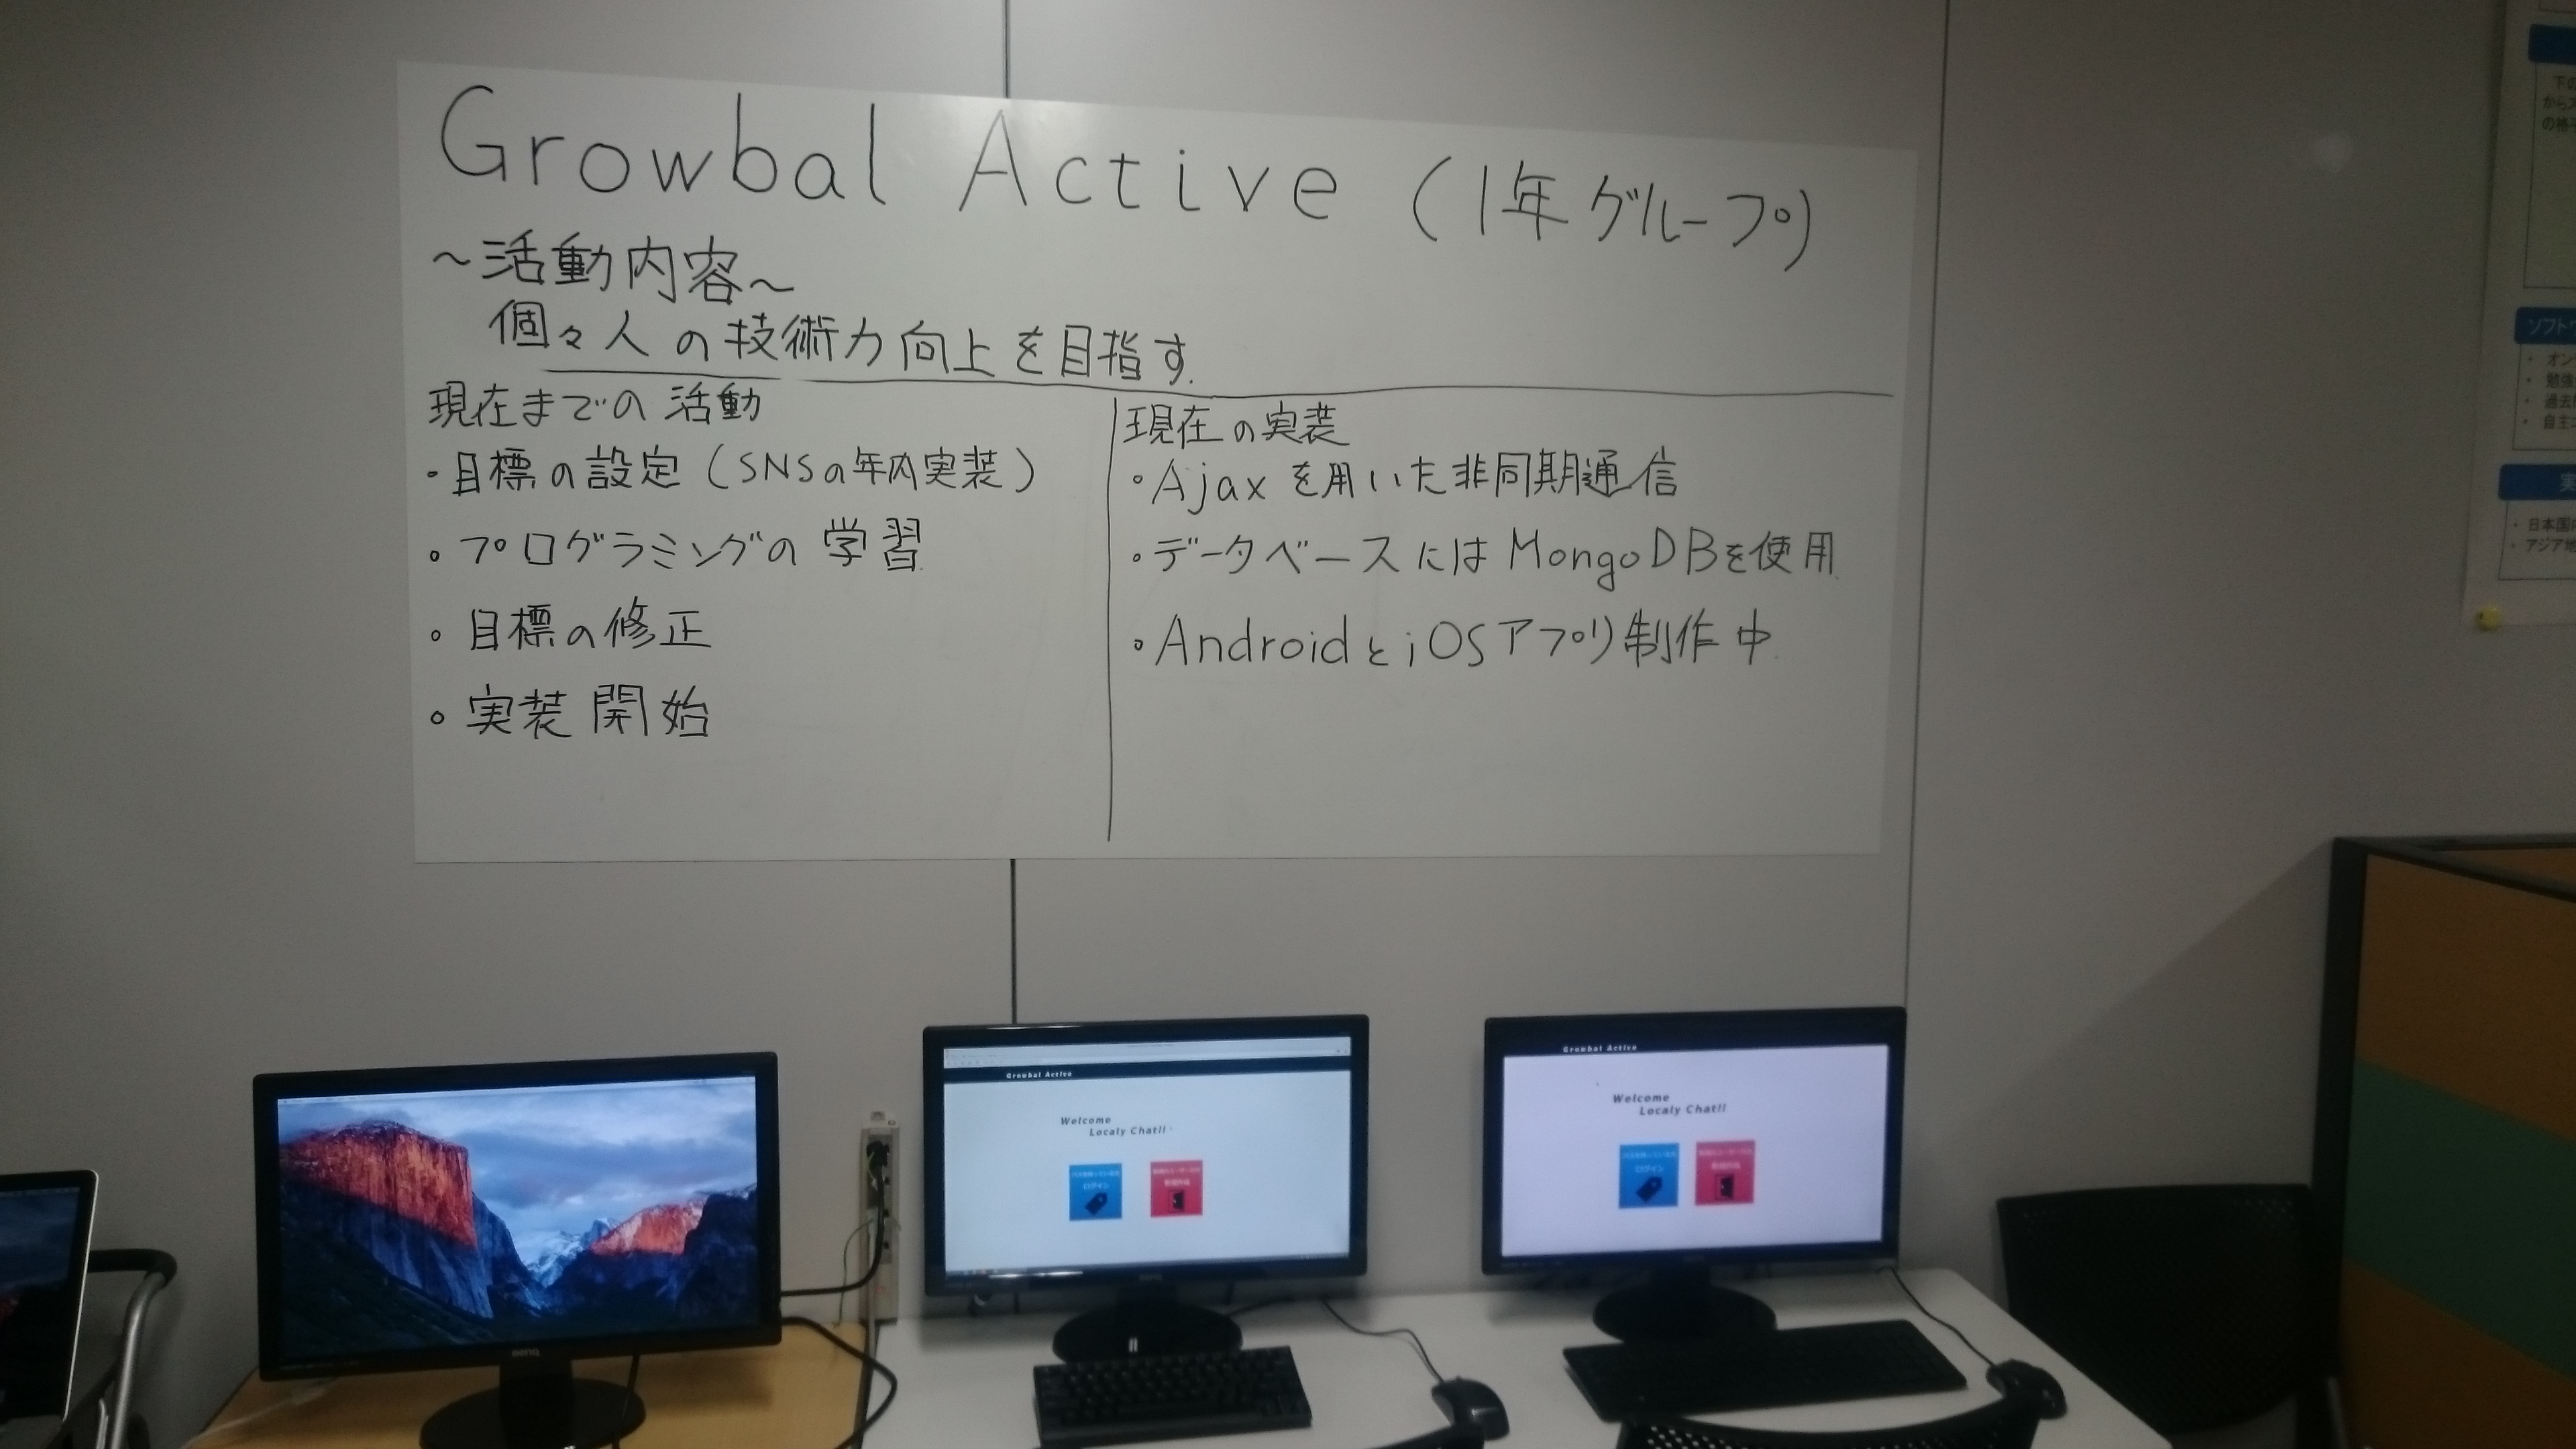 Growbal Active (1年グループ)
~活動内容~
個々人の技術力向上を目指す.
現在までの活動
・目標の設定(SNSの年内実装)
・プログラミングの学習
・目標の修正
・実装開始
現在の実装
・Ajaxを用いた非同期通信
・データベースにはMongoDBを使用
・AndroidとiOSアプリ制作中
Growbal Active
Welcome
Localy Chat!!
ログイン
Growbal Active
Welcome
Localy Chat!!
ログイン
BenQ
下の
から
の格
ソフト
・オン
・勉強
・過去
・自主
実
・日本国
・アジア地